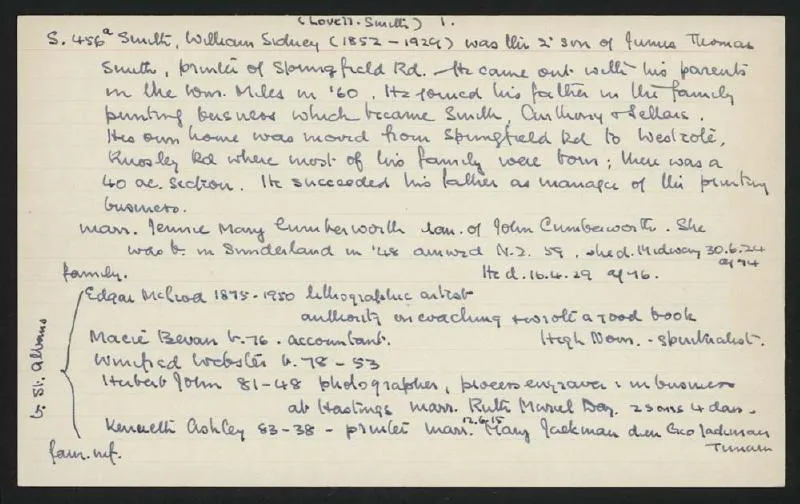 (Lovell-Smith) 1.
S. 456a Smith, William Sidney (1852 – 1929) was the 2° son of Junius Thomas
Smith, printer of Springfield Rd. He came out with his parents
in the Wm. Miles in '60. He joined his father in the family
printing business which became Smith, Anthony & Sellars.
His own home was moved from Springfield Rd to Westcote,
Knowsley Rd where most of his family were born; there was a
40 ac. section. He succeeded his father as manager of the printing
business.
marr. Jennie Mary Cumberworth dau. of John Cumberworth. She
was b. in Sunderland in '48 arrived N.Z. 59, she d. Midway 30.6.24
ag 74
family. He d. 16.4.29 ag 76.
Edgar McLeod 1875-1950 lithographic artist
authority on coaching & wrote a good book
Macie Bevan b. 76. accountant. High Down. - spiritualist.
Winifred Webster b. 78 – 53
Herbert John 81-48 photographer, process engraver: in business
at Hastings marr. Ruth Muriel Day. 2 sons 4 daus.
Kenneth Ashley 83-38 – printer marr. 12.6.15 Mary Jackman d. Geo Jackman
Timaru
b. St. Albans
fam. inf.